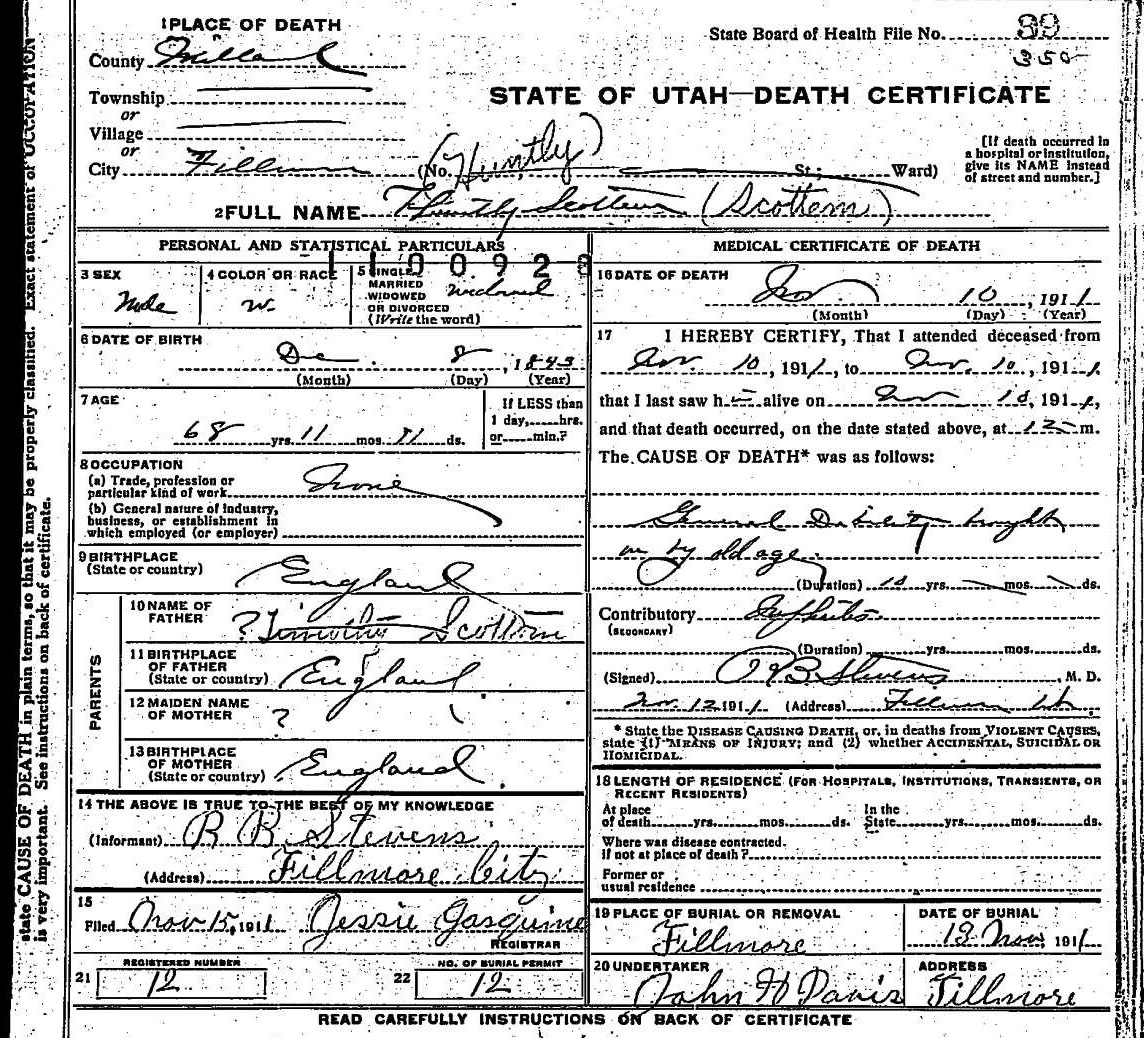 state CAUSE OF DEATH in plain terms, so that it may be properly classified. Exact statement of OCCUPATION
is very important. See instructions on back of certificate.
1 PLACE OF DEATH
County Millard
Township
or
Village
or
City Fillmore (No. St; Ward)
(Huntly)
State Board of Health File No. 99
350
STATE OF UTAH—DEATH CERTIFICATE
[If death occurred in
a hospital or institution,
give its NAME instead
of street and number.]
2 FULL NAME Huntly Scottem (Scottem)
PERSONAL AND STATISTICAL PARTICULARS
1100928
3 SEX
Male
4 COLOR OR RACE
W.
5 SINGLE
MARRIED
WIDOWED
OR DIVORCED
(Write the word)
widowed
6 DATE OF BIRTH
Dec. 8, 1843
(Month) (Day) (Year)
7 AGE
68 yrs. 11 mos. ds.
If LESS than
1 day, hrs.
or min.?
8 OCCUPATION
(a) Trade, profession or
particular kind of work None
(b) General nature of industry,
business, or establishment in
which employed (or employer)
9 BIRTHPLACE
(State or country) England
PARENTS
10 NAME OF
FATHER ? Timothy Scottom
11 BIRTHPLACE
OF FATHER
(State or country) England
12 MAIDEN NAME
OF MOTHER ?
13 BIRTHPLACE
OF MOTHER
(State or country) England
14 THE ABOVE IS TRUE TO THE BEST OF MY KNOWLEDGE
(Informant) R B Stevens
(Address) Fillmore City
15
Filed Nov 15, 1911 Jessie Gasquine
REGISTRAR
21 REGISTERED NUMBER
12
22 NO. OF BURIAL PERMIT
12
MEDICAL CERTIFICATE OF DEATH
16 DATE OF DEATH
Nov 10, 1911
(Month) (Day) (Year)
17 I HEREBY CERTIFY, That I attended deceased from
Nov. 10, 1911, to Nov. 10, 1911,
that I last saw h alive on Nov 10, 1911,
and that death occurred, on the date stated above, at m.
The CAUSE OF DEATH* was as follows:
General Debility brought
on by old age.
(Duration) 10 yrs. mos. ds.
Contributory
(SECONDARY)
(Duration) yrs. mos. ds.
(Signed) Stevens, M. D.
Nov. 12 1911 (Address) Fillmore Ut.
* State the DISEASE CAUSING DEATH, or, in deaths from VIOLENT CAUSES,
state (1) MEANS OF INJURY; and (2) whether ACCIDENTAL, SUICIDAL OR
HOMICIDAL.
18 LENGTH OF RESIDENCE (FOR HOSPITALS, INSTITUTIONS, TRANSIENTS, OR
RECENT RESIDENTS)
At place
of death yrs. mos. ds.
In the
State yrs. mos. ds.
Where was disease contracted.
if not at place of death?
Former or
usual residence
19 PLACE OF BURIAL OR REMOVAL
Fillmore
DATE OF BURIAL
13 Nov, 1911
20 UNDERTAKER
John H Davis
ADDRESS
Fillmore
READ CAREFULLY INSTRUCTIONS ON BACK OF CERTIFICATE